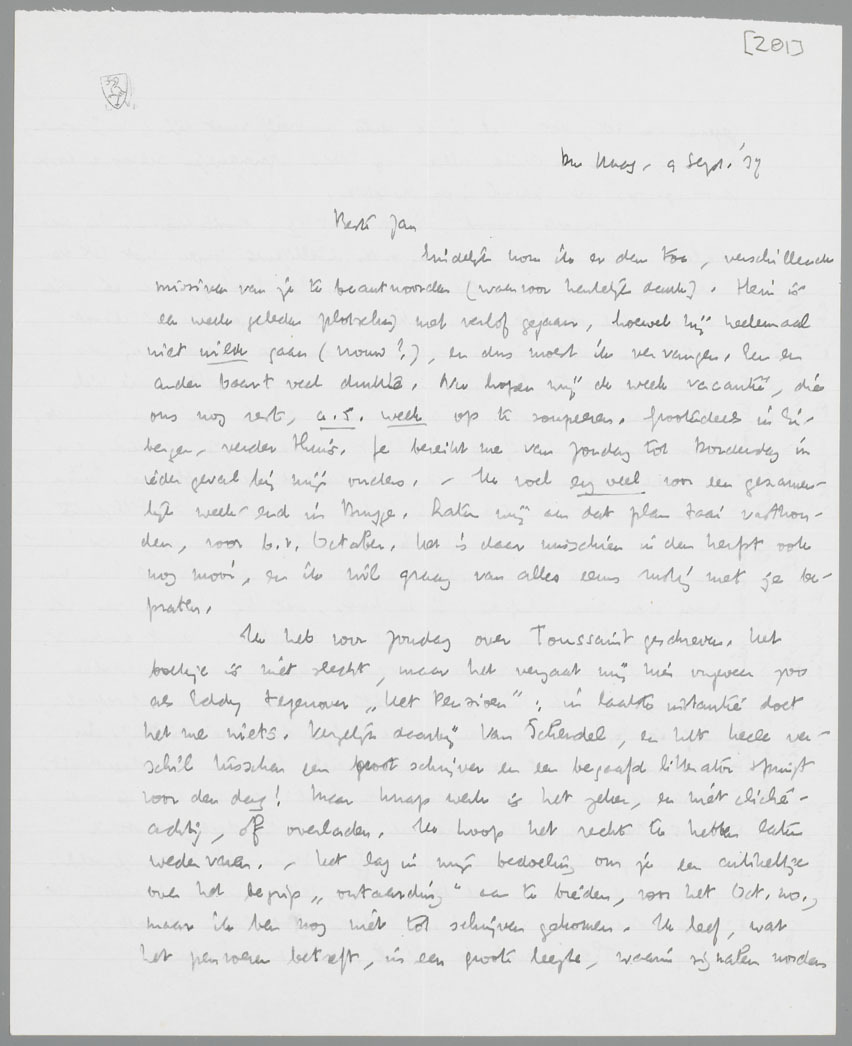 [201]
Den Haag, 9 Sept. '37
Beste Jan
Eindelijk kom ik er dan toe, verschillende
missiven van je te beantwoorden (waarvoor hartelijk dank). Hein is
een week geleden plotseling met verlof gegaan, hoewel hij heelemaal
niet wilde gaan (vrouw?), en dus moest ik vervangen. Een en
ander baart veel drukte. Nu hopen wij de week vacantie, die
ons nog rest, a.s. week op te souperen. Grootendeels in Ei-
bergen, verder thuis. Je bereikt me van Zondag tot Donderdag in
ieder geval bij mijn ouders. – Ik voel erg veel voor een gezamen-
lijk week-end in Brugge. Laten wij aan dat plan taai vasthou-
den, voor b.v. October. Het is daar misschien in den herfst ook
nog mooi, en ik wil graag van alles eens rustig met je be-
praten.
Ik heb voor Zondag over Toussaint geschreven. Het
boekje is niet slecht, maar het vergaat mij hier ongeveer zoo
als Eddy tegenover „Het Pensioen": in laatste instantie doet
het me niets. Vergelijk daarbij Van Schendel, en het heele ver-
schil tusschen een groot schrijver en een begaafd litterator springt
voor den dag! Maar knap werk is het zeker, en niet cliché-
achtig, of overladen. Ik hoop het recht te hebben laten
wedervaren. – Het lag in mijn bedoeling om je een artikeltje
over het begrip „ontaarding" aan te bieden, voor het Oct. no.,
maar ik ben nog niet tot schrijven gekomen. Ik leef, wat
het pennevoeren betreft, in een groote leegte, waarin signalen worden